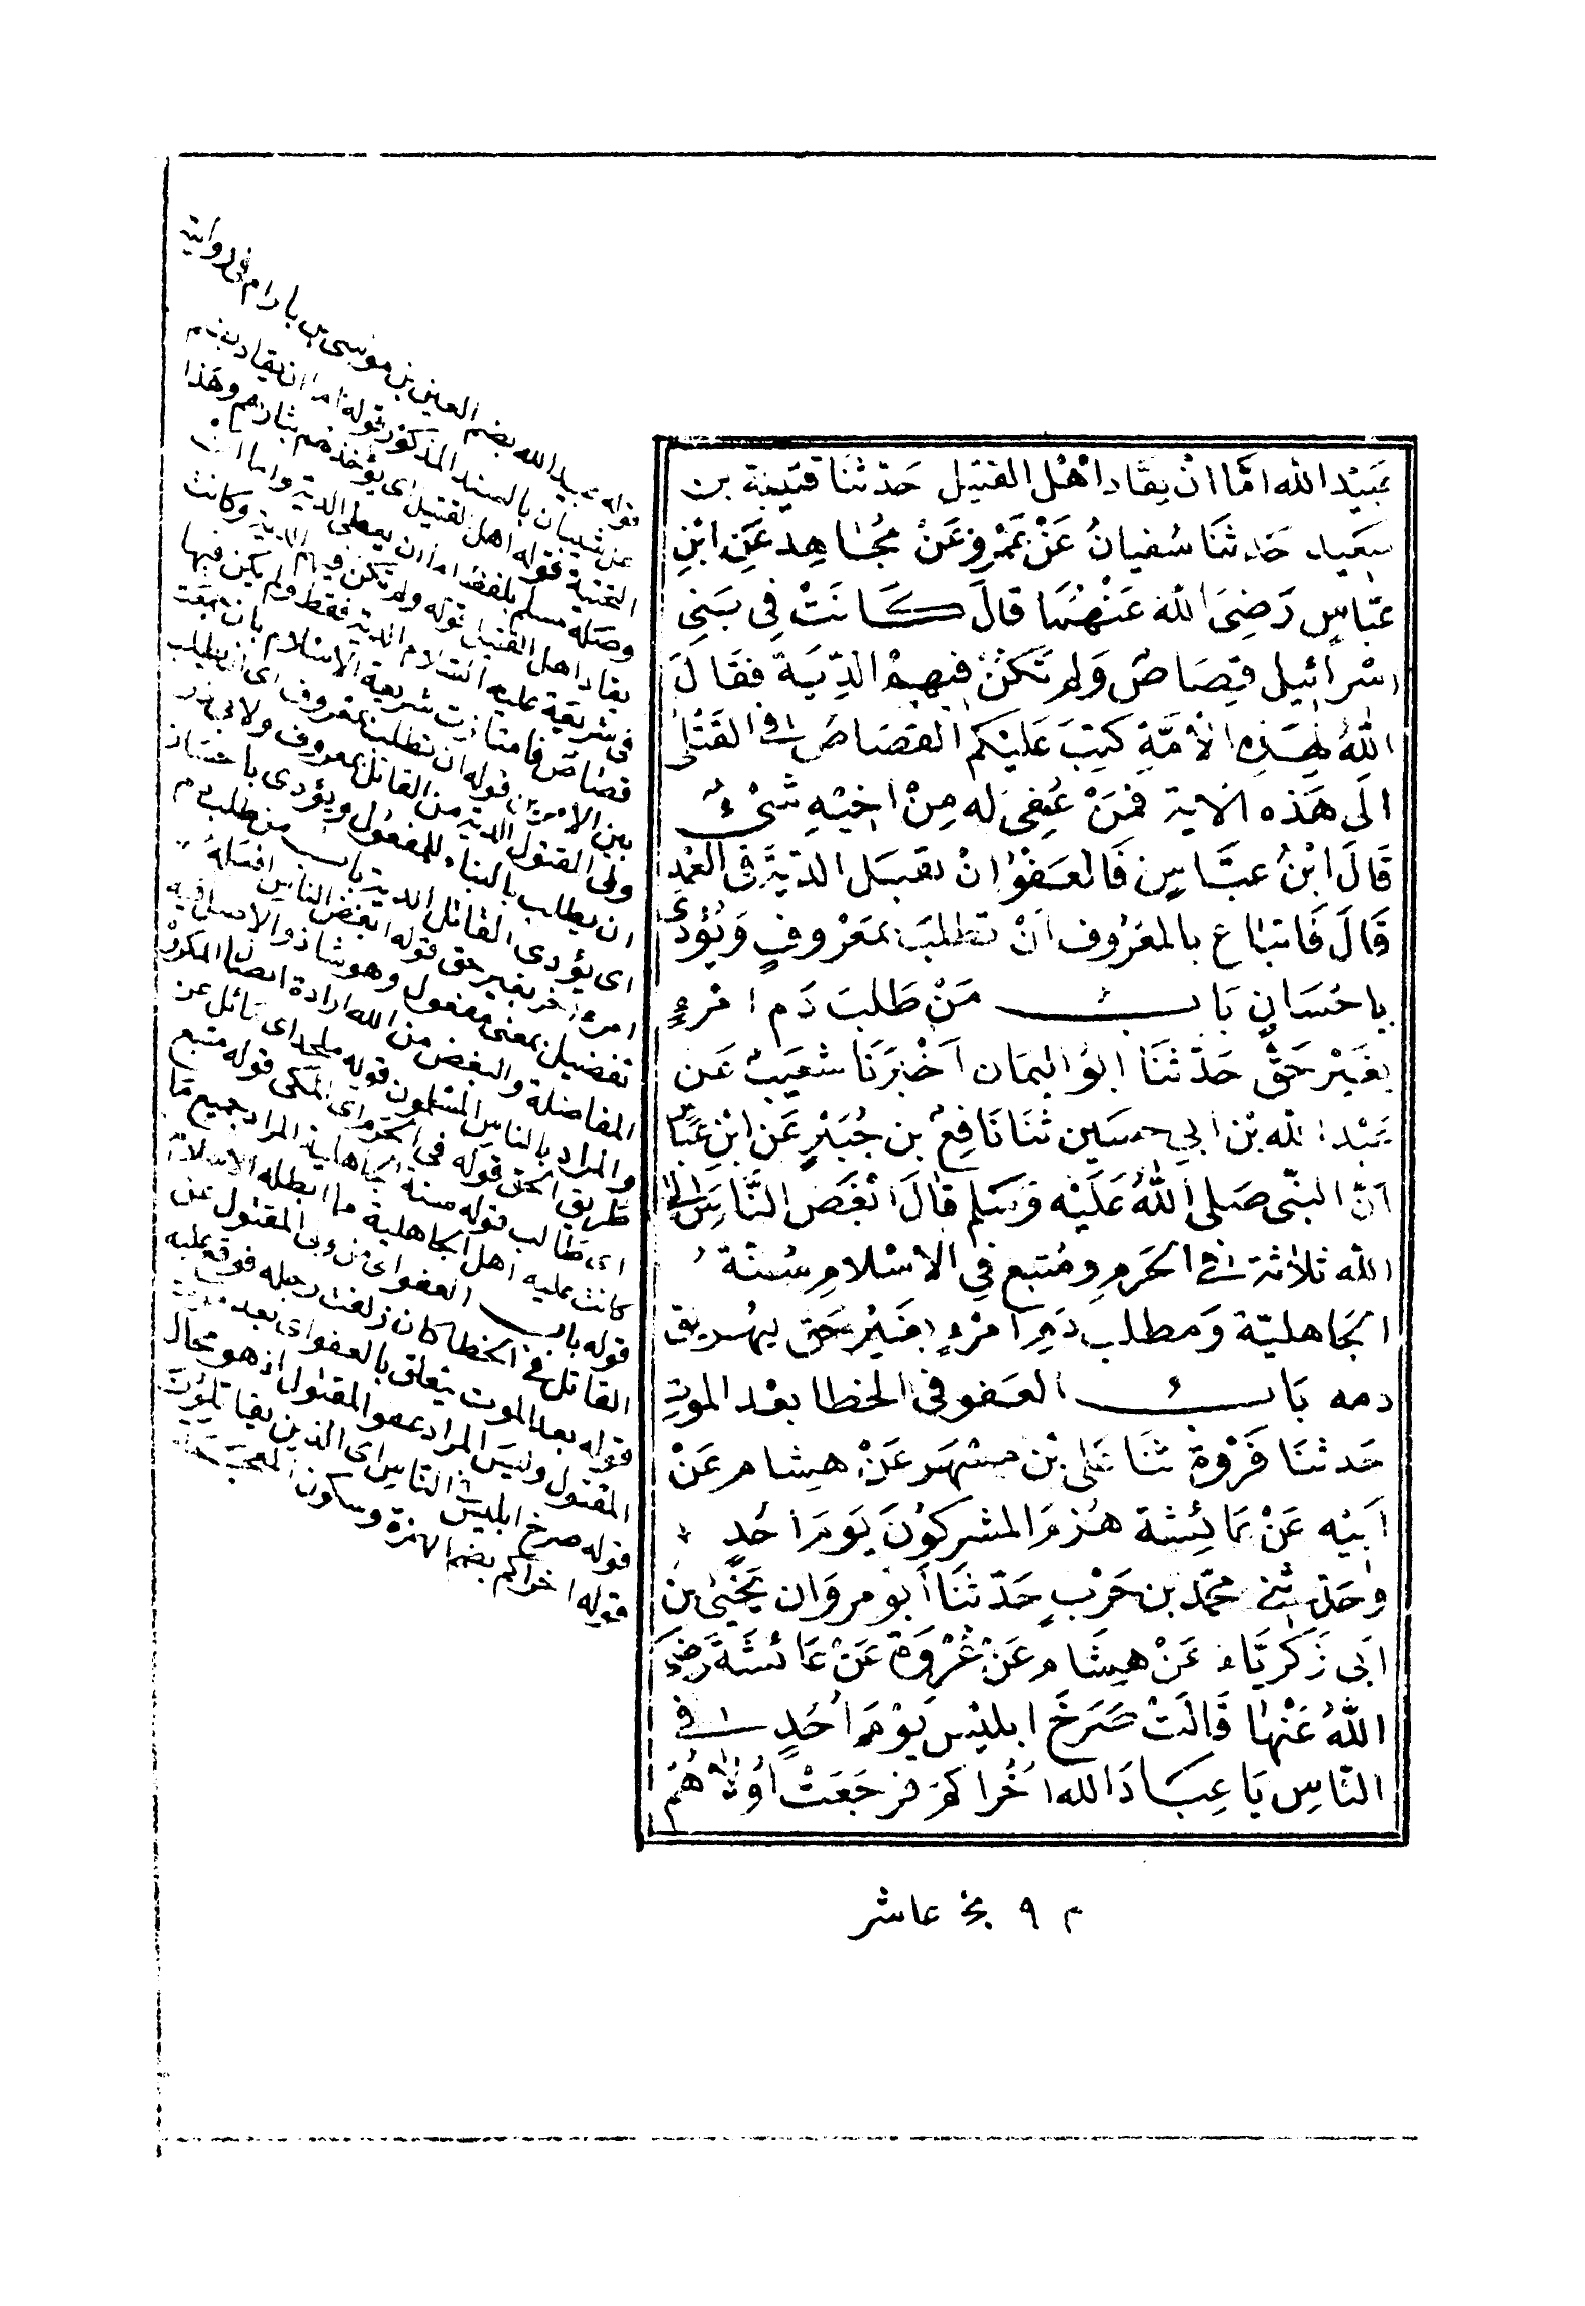 عُبَيْدُ الله امَّا انْ يقَاد اَهْلُ القتيل حَدثنَا قتَيْبة بن
سَعِيد حَدثنَا سُفيانُ عَنْ عَمْرٍو عَنْ مُجَاهِد عَنِ ابْنِ
عَبّاسٍ رَضِيَ اللهُ عَنْهُمَا قالَ كَانَتْ فِي بَنِي
اسْرائيل قِصَاصٌ وَلم تَكُنْ فيهِمْ الدِّيَةُ فقَالَ
اللهُ لِهَذِهِ الْأُمَّةِ كُتِبَ عَلَيْكم القصَاصُ في القَتْلَى
الَى هَذه الآية فَمَنْ عُفِيَ له مِنْ اخِيْهِ شَيْءٌ
قَالَ ابْنُ عبَّاسٍ فَالعَفْوُ انْ يقبَل الدّيَةَ في العَمْدِ
قَالَ فَاتبَاع بالمعْرُوف انْ تطلبَ بمَعْرُوفٍ وَيُؤدّى
بِاحْسَانٍ بَابُ مَنْ طَلبَ دَم امْرِءٍ
بِغَيْر حَقٍّ حَدّثنَا ابُو اليَمَان اَخْبَرَنَا شُعَيبٌ عَن
عَبْد الله بْن ابي حسَين ثنَا نَافِعُ بن جُبَيْرٍ عَن ابْنِ عَبّاس
انّ النبّى صَلى اللهُ عَلَيْه وَسَلم قالَ ابْغَضُ النَّاسِ الى
الله ثلاثة مُلحِد فى الحَرَمِ ومُبْتَغ فِي الاسْلامِ سُنّةَ
الجَاهليّة وَمطلب دَمِ امْرِءٍ بغَيْرِ حَقٍّ ليُهَرِيق
دمه بَابُ العَفو في الخطا بعْد الموْتِ
حَدثنَا فَرْوةُ ثنَا عَلى بْن مسْهَر عَنْ هِشام عَنْ
ابَيْه عَنْ عَائِشة هُزِمَ المشركوْنَ يَومَ اُحُدٍ
وحَدّثنِي محمّد بن حَرْبٍ حَدّثنَا أبو مروَان يَحْيَى بن
ابى زَكَريّاء عَنْ هِشَام عَنْ عُرْوَةَ عَنْ عَائشَةَ رَضِيَ
اللهُ عَنْهَا قَالَتْ صَرَخَ ابليْس يوْمَ اُحُدٍ في
النّاسِ يَا عِبَادَ الله اُخْراكمْ فرَجَعَتْ اُوْلاهُمْ
قوله عبيد الله بضم العين بن موسى بن باذام في روايته
عن شيبان بالسند المذكور قوله اما ان يقاد بضم
التحتية قوله اهل القتيل اى يؤخذ لهم بثارهم وهذا
وصله مسلم بلفظ اما ان يعطى الدية واما ان
يقاد اهل القتيل قوله ولم تكن فيهم الدية وكانت
في شريعة عليه السلام الدية فقط ولم يكن فيها
قصاص فامتازت شريعة الاسلام بان جمعت
بين الامرين قوله ان تطلب بمعروف اى ان يطلب
ولى المقتول الدية من القاتل بمعروف ولابى ذر
ان يطلب بالبناء للمفعول ويؤدى باحسان
اى يؤدى القاتل الدية باب من طلب دم
امرء اخر بغير حق قوله ابغض الناس افعل
تفضيل بمعنى مفعول وهو شاذ والاصل فيه
المفاضلة والبغض من الله ارادة ايصال المكروه
والمراد بالناس المسلمون قوله ملحد اى مائل عن
طريق الحق قوله في الحرم اى المكى قوله متبع
اى طالب قوله سنة الجاهلية المراد جميع ما
كانت عليه اهل الجاهلية ما ابطله الاسلام
قوله باب العفو اى من ولى المقتول عن
القاتل في الخطا كان زلقت رجله فوقع عليه
قوله بعد الموت يتعلق بالعفو اى بعد موت
المقتول وليس المراد عفو المقتول اذ هو محال
قوله صرخ ابليس في الناس اى الذين يقاتلون
قوله اخراكم بضم الهمزة وسكون المعجمة
م ٩ بخ عاشر